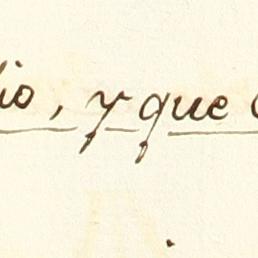 io, y que